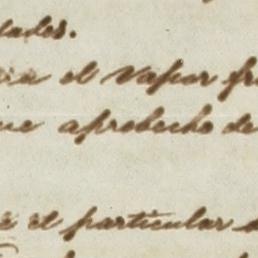 lades.
el vapor fr
ue aprobecho de
é el particular